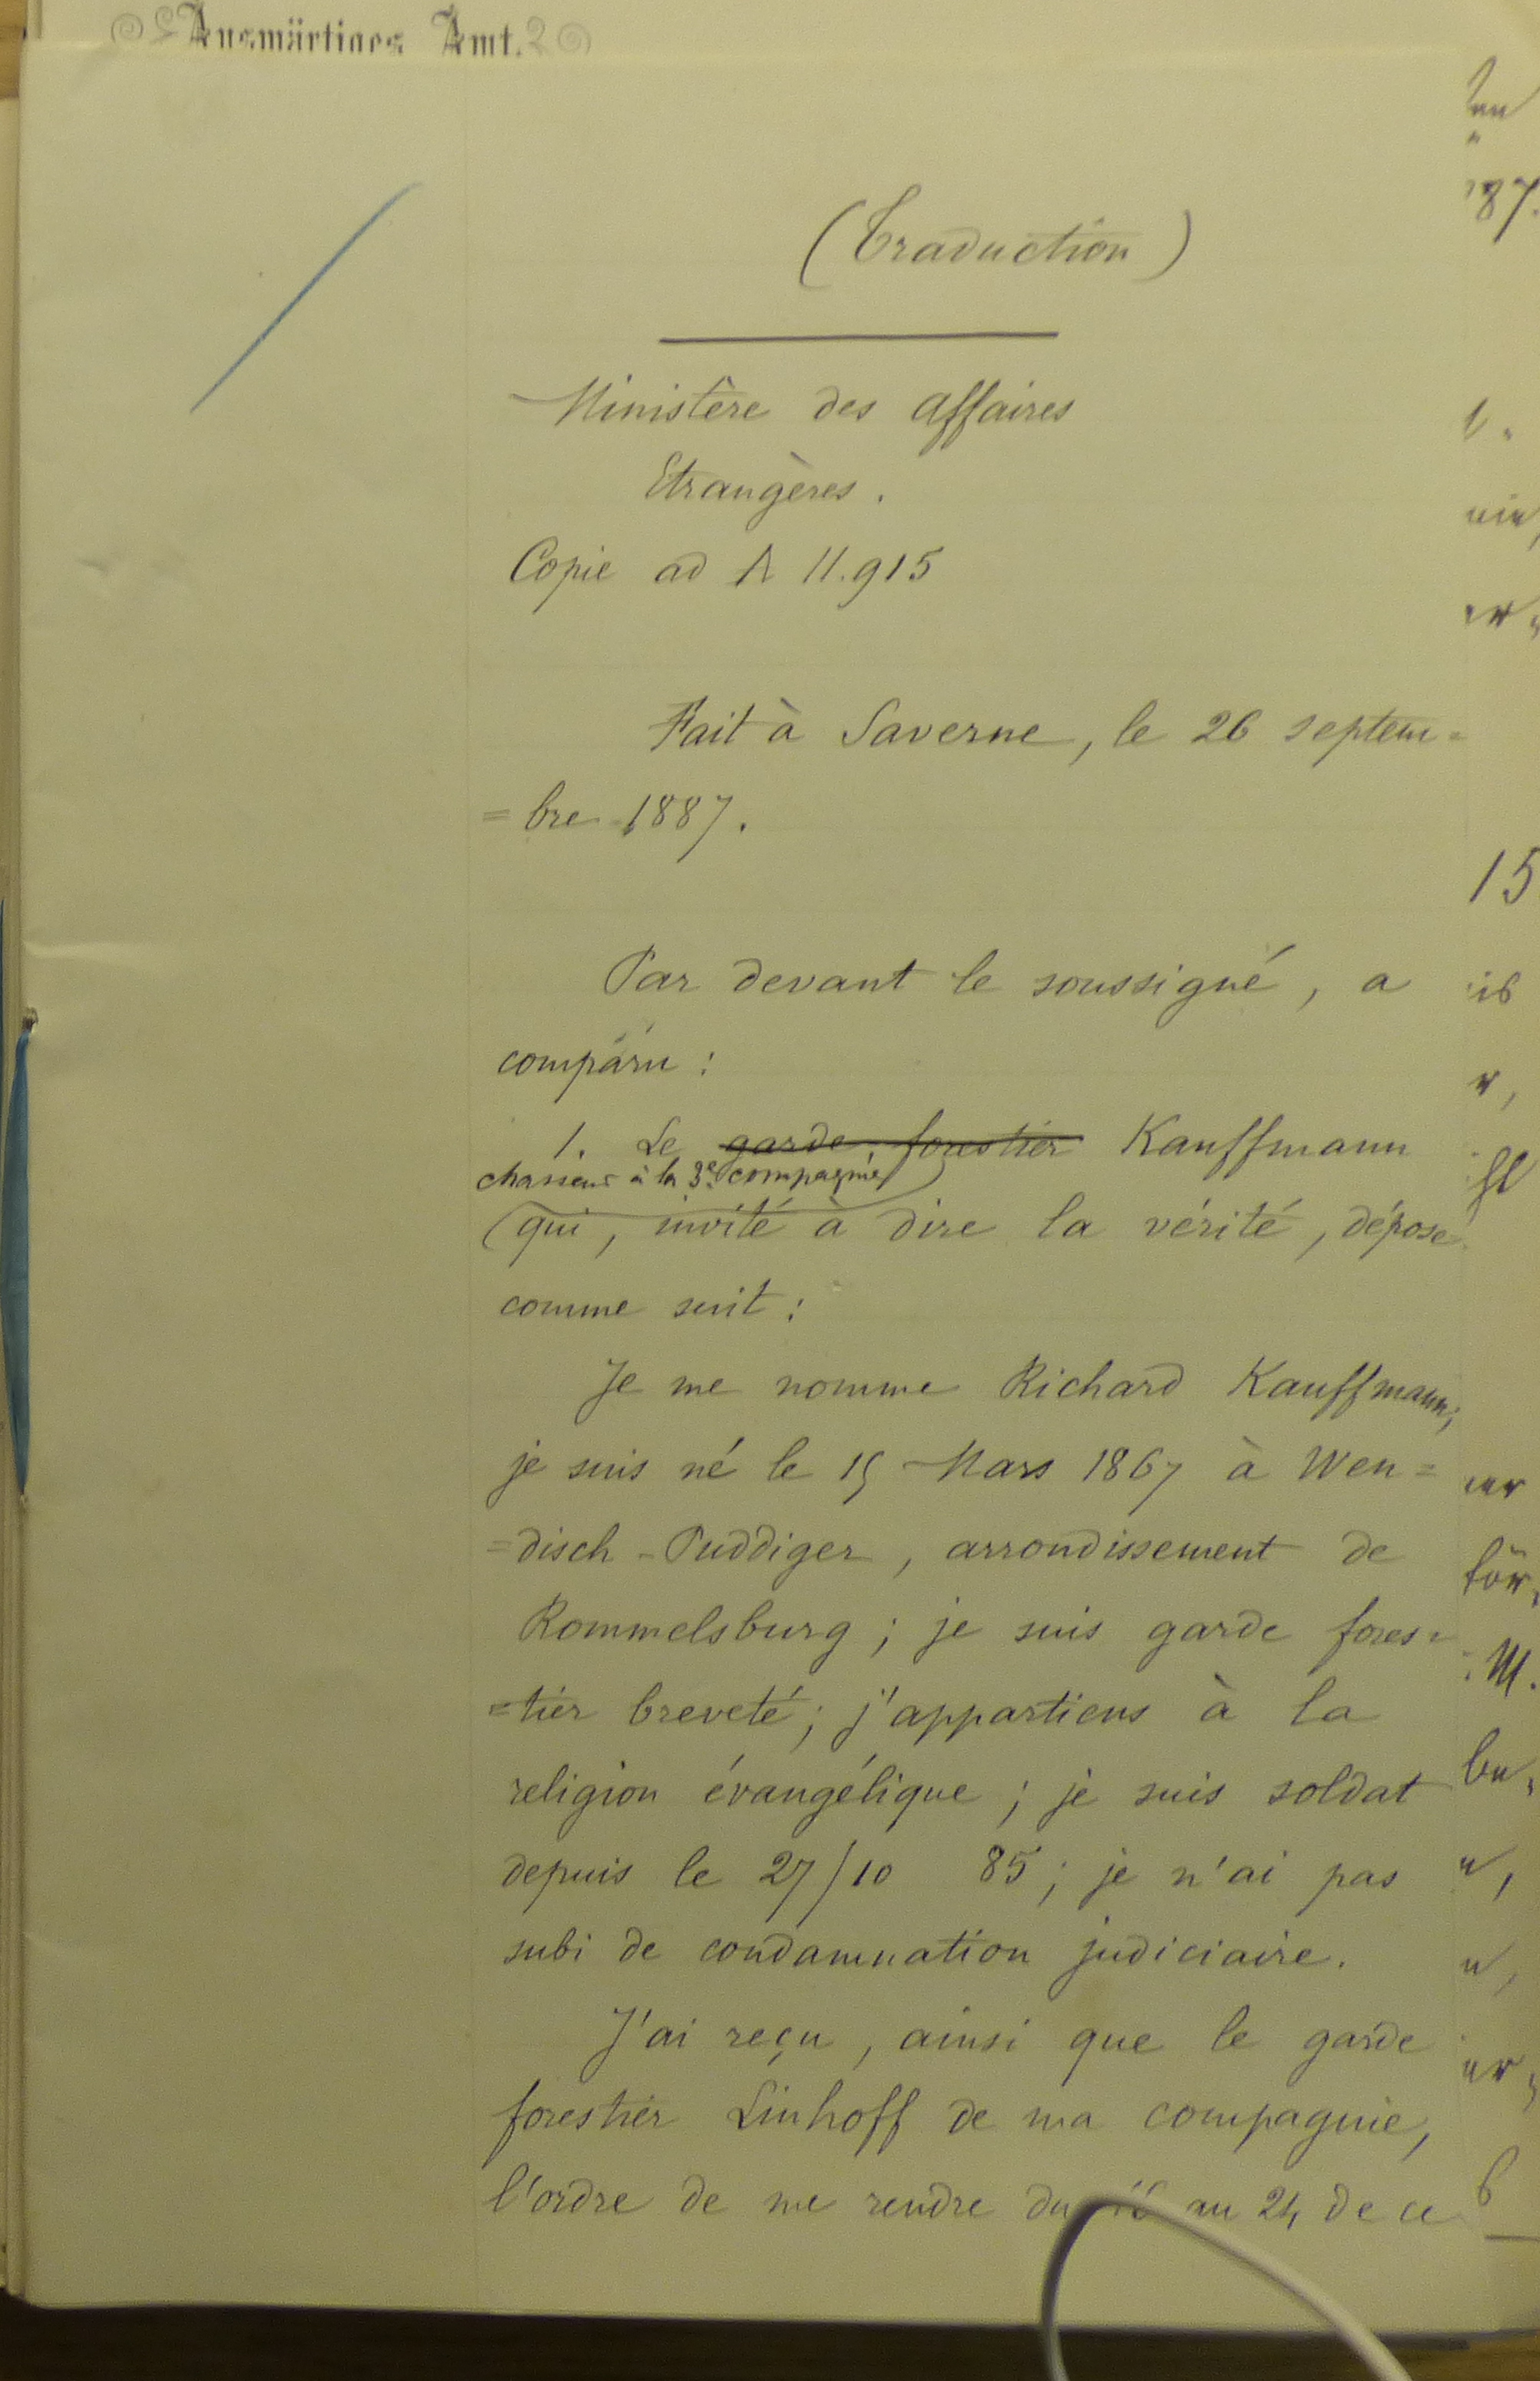 Auswärtiges Amt.
(Traduction)
Ministère des Affaires
Etrangères.
Copie ad A 11.915
Fait à Saverne, le 26 septem=
=bre 1887.
Par devant le soussigné, a
comparu :
1. Le garde forestier Kauffmann
chasseur à la 3e compagnie
(qui, invité à dire la vérité, dépose
comme suit :
Je me nomme Richard Kauffmann;
je suis né le 15 Mars 1867 à Wen=
=disch-Puddiger, arrondissement de
Rommelsburg ; je suis garde fores=
=tier breveté; j'appartiens à la
religion évangélique ; je suis soldat
depuis le 27/10 85 ; je n'ai pas
subi de condamnation judiciaire.
J'ai reçu, ainsi que le garde
forestier Linhoff de ma compagnie,
l'ordre de me rendre du au 24 de ce
87.
15